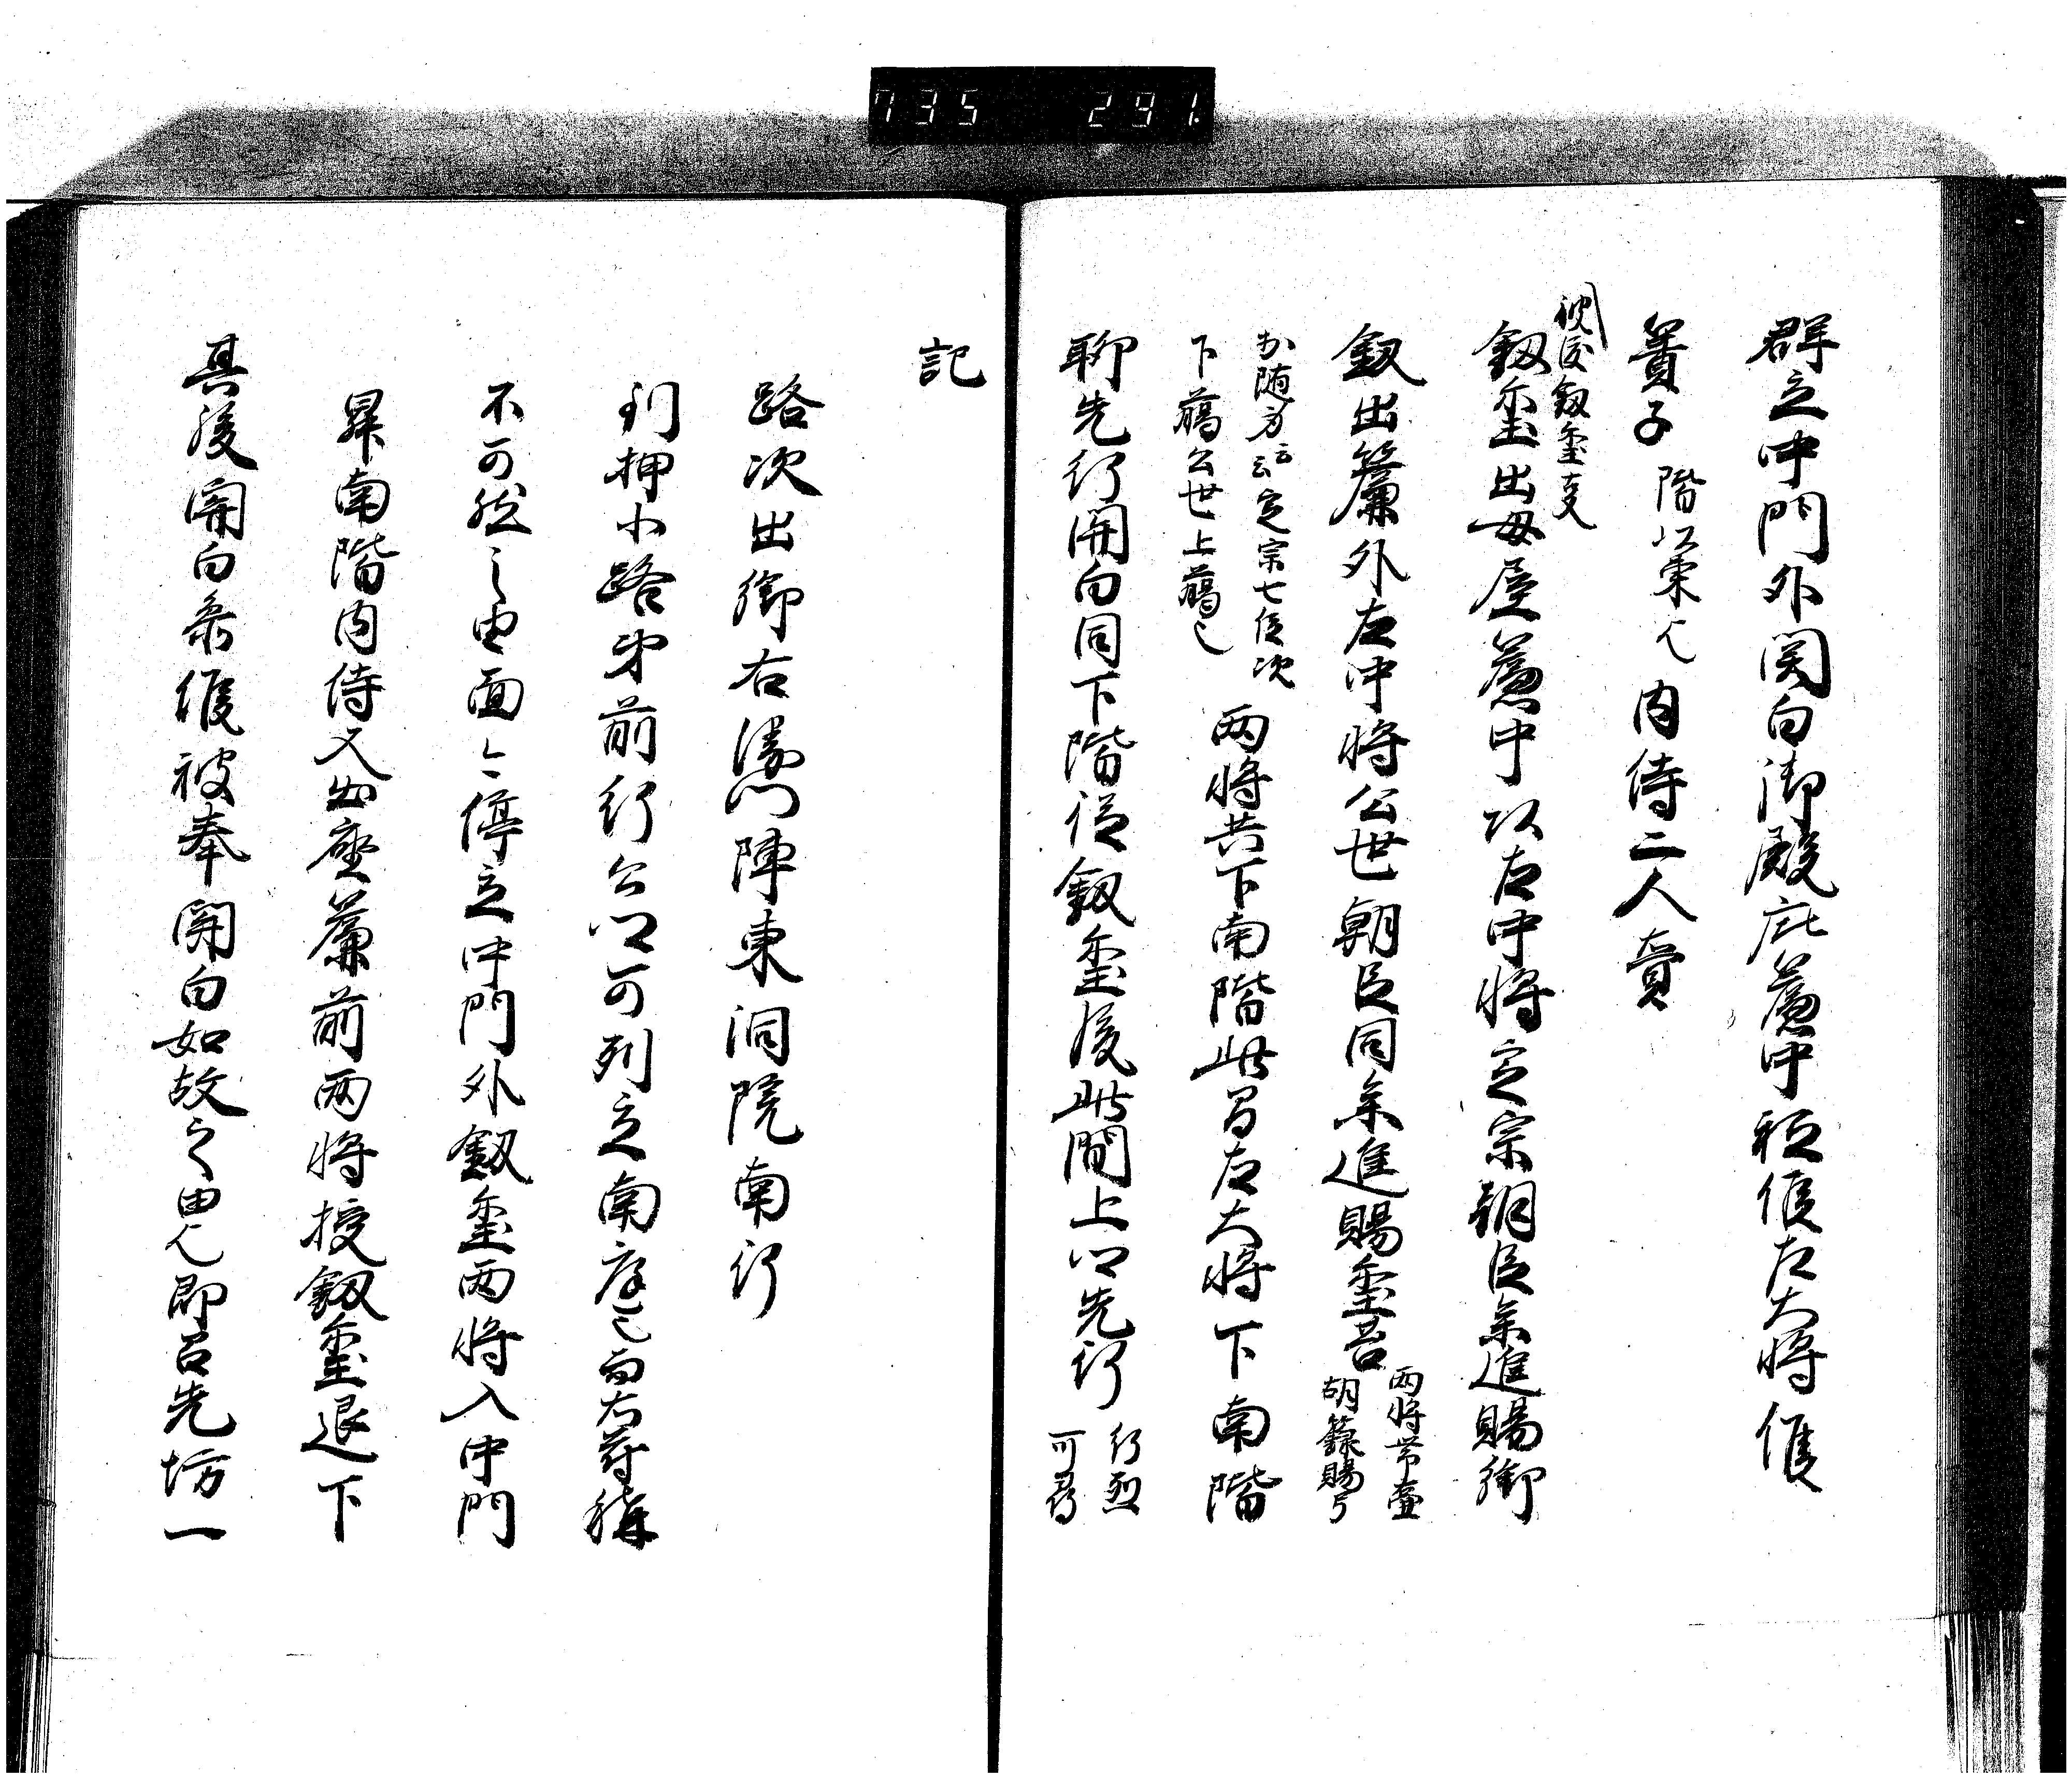 735 291
群立中門外関白御殿庇簾中祗候左大将候
簀子階以東也内侍二人賷
被渡剱璽事
剱璽出母屋簾中以左中将定宗朝臣参進賜御
剱出簾外左中将公世朝臣同参進賜璽筥両将帯壷
胡籙賜了
お随身云々定宗七位次
下臈公世上臈也
両将共下南階此間左大将下南階
聊先行関白同下階従剱璽後此間上卿先行行烈
可尋
記
路次出御右衛門陣東洞院南行
到押小路第前行公卿可列立南庭之由右府称
不可然之由面々停立中門外剱璽両将入中門
昇南階内侍又出座簾前両将授剱璽退下
其後関白参候被奉関白如故之由也即召先坊一